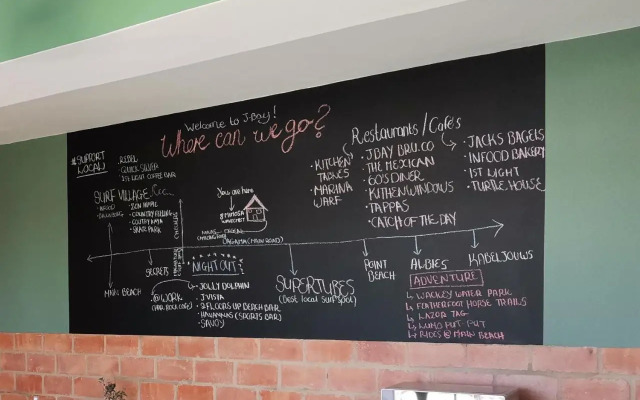 Welcome to J-Bay!
Where can we go?
#SUPPORT
LOCAL
· REBEL
· QUICK SILVER
· 1ST LIGHT COFFEE BAR
SURF VILLAGE
· COUNTRY FEELING
You are here
@ MIMOSA
DAGAMA (MAIN ROAD)
Restaurants/Cafés
· KITCHEN
· MARINA
WARF
· JBAY BRU.CO
· THE MEXICAN
· 60'S DINER
· KITHENWINDOWS
· TAPPAS
· CATCH OF THE DAY
· JACKS BAGELS
· INFOOD BAKERY
· 1ST LIGHT
· TURTLE HOUSE
MAIN BEACH
SECRETS
NIGHT OUT
· @WORK
· JOLLY DOLPHIN
· J VISTA
· 2 FLOORS UP BEACH BAR
(SPORTS BAR)
· SAVOY
SUPERTUBES
(Best local surf spot)
POINT
BEACH
ALBIES
KABELJOUWS
ADVENTURE
WACKEY WATER PARK
FEATHERFOOT HORSE TRAILS
LAZER TAG
PUT PUT
RIDES @ MAIN BEACH